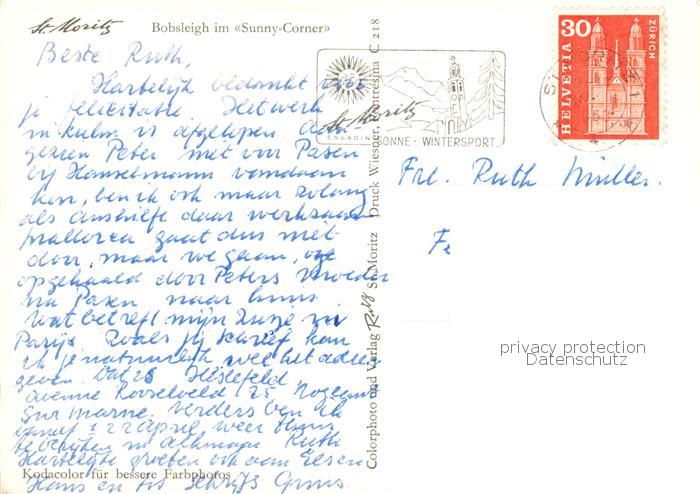 St. Moritz Bobsleigh im «Sunny-Corner»
Beste Ruth,
Hartelijk bedankt voor
je felicitatie. Het werk
in Kulm is afgelopen. Aan-
gezien Peter met voor Pasen
bij Hanselmann vandaan
kon, ben ik ook maar zolang
als aushilfe daar werkzaam
Mallorca gaat dus niet
door, maar we gaan,
opgehaald door Peters Moeder
na Pasen naar huis.
Wat betreft mijn Zusje in
Parijs. Zoals jij schreef kan
ik je natuurlijk wel het adres
geven. Dat is
avenue Roosevelt 25 Nogent
Sur Marne. Verders ben ik
vanaf ± 22 April weer thuis
te bereiken in Alkmaar Ruth
Hartelijke groeten ook van
Hans en tot
Kodacolor für bessere Farbphotos
Colorphoto und Verlag Rutz St. Moritz Druck Wiesner, Pontresina C 218
St. Moritz
ENGADIN
SONNE - WINTERSPORT
30
HELVETIA
ZÜRICH
Frl. Ruth Müller.
privacy protection
Datenschutz